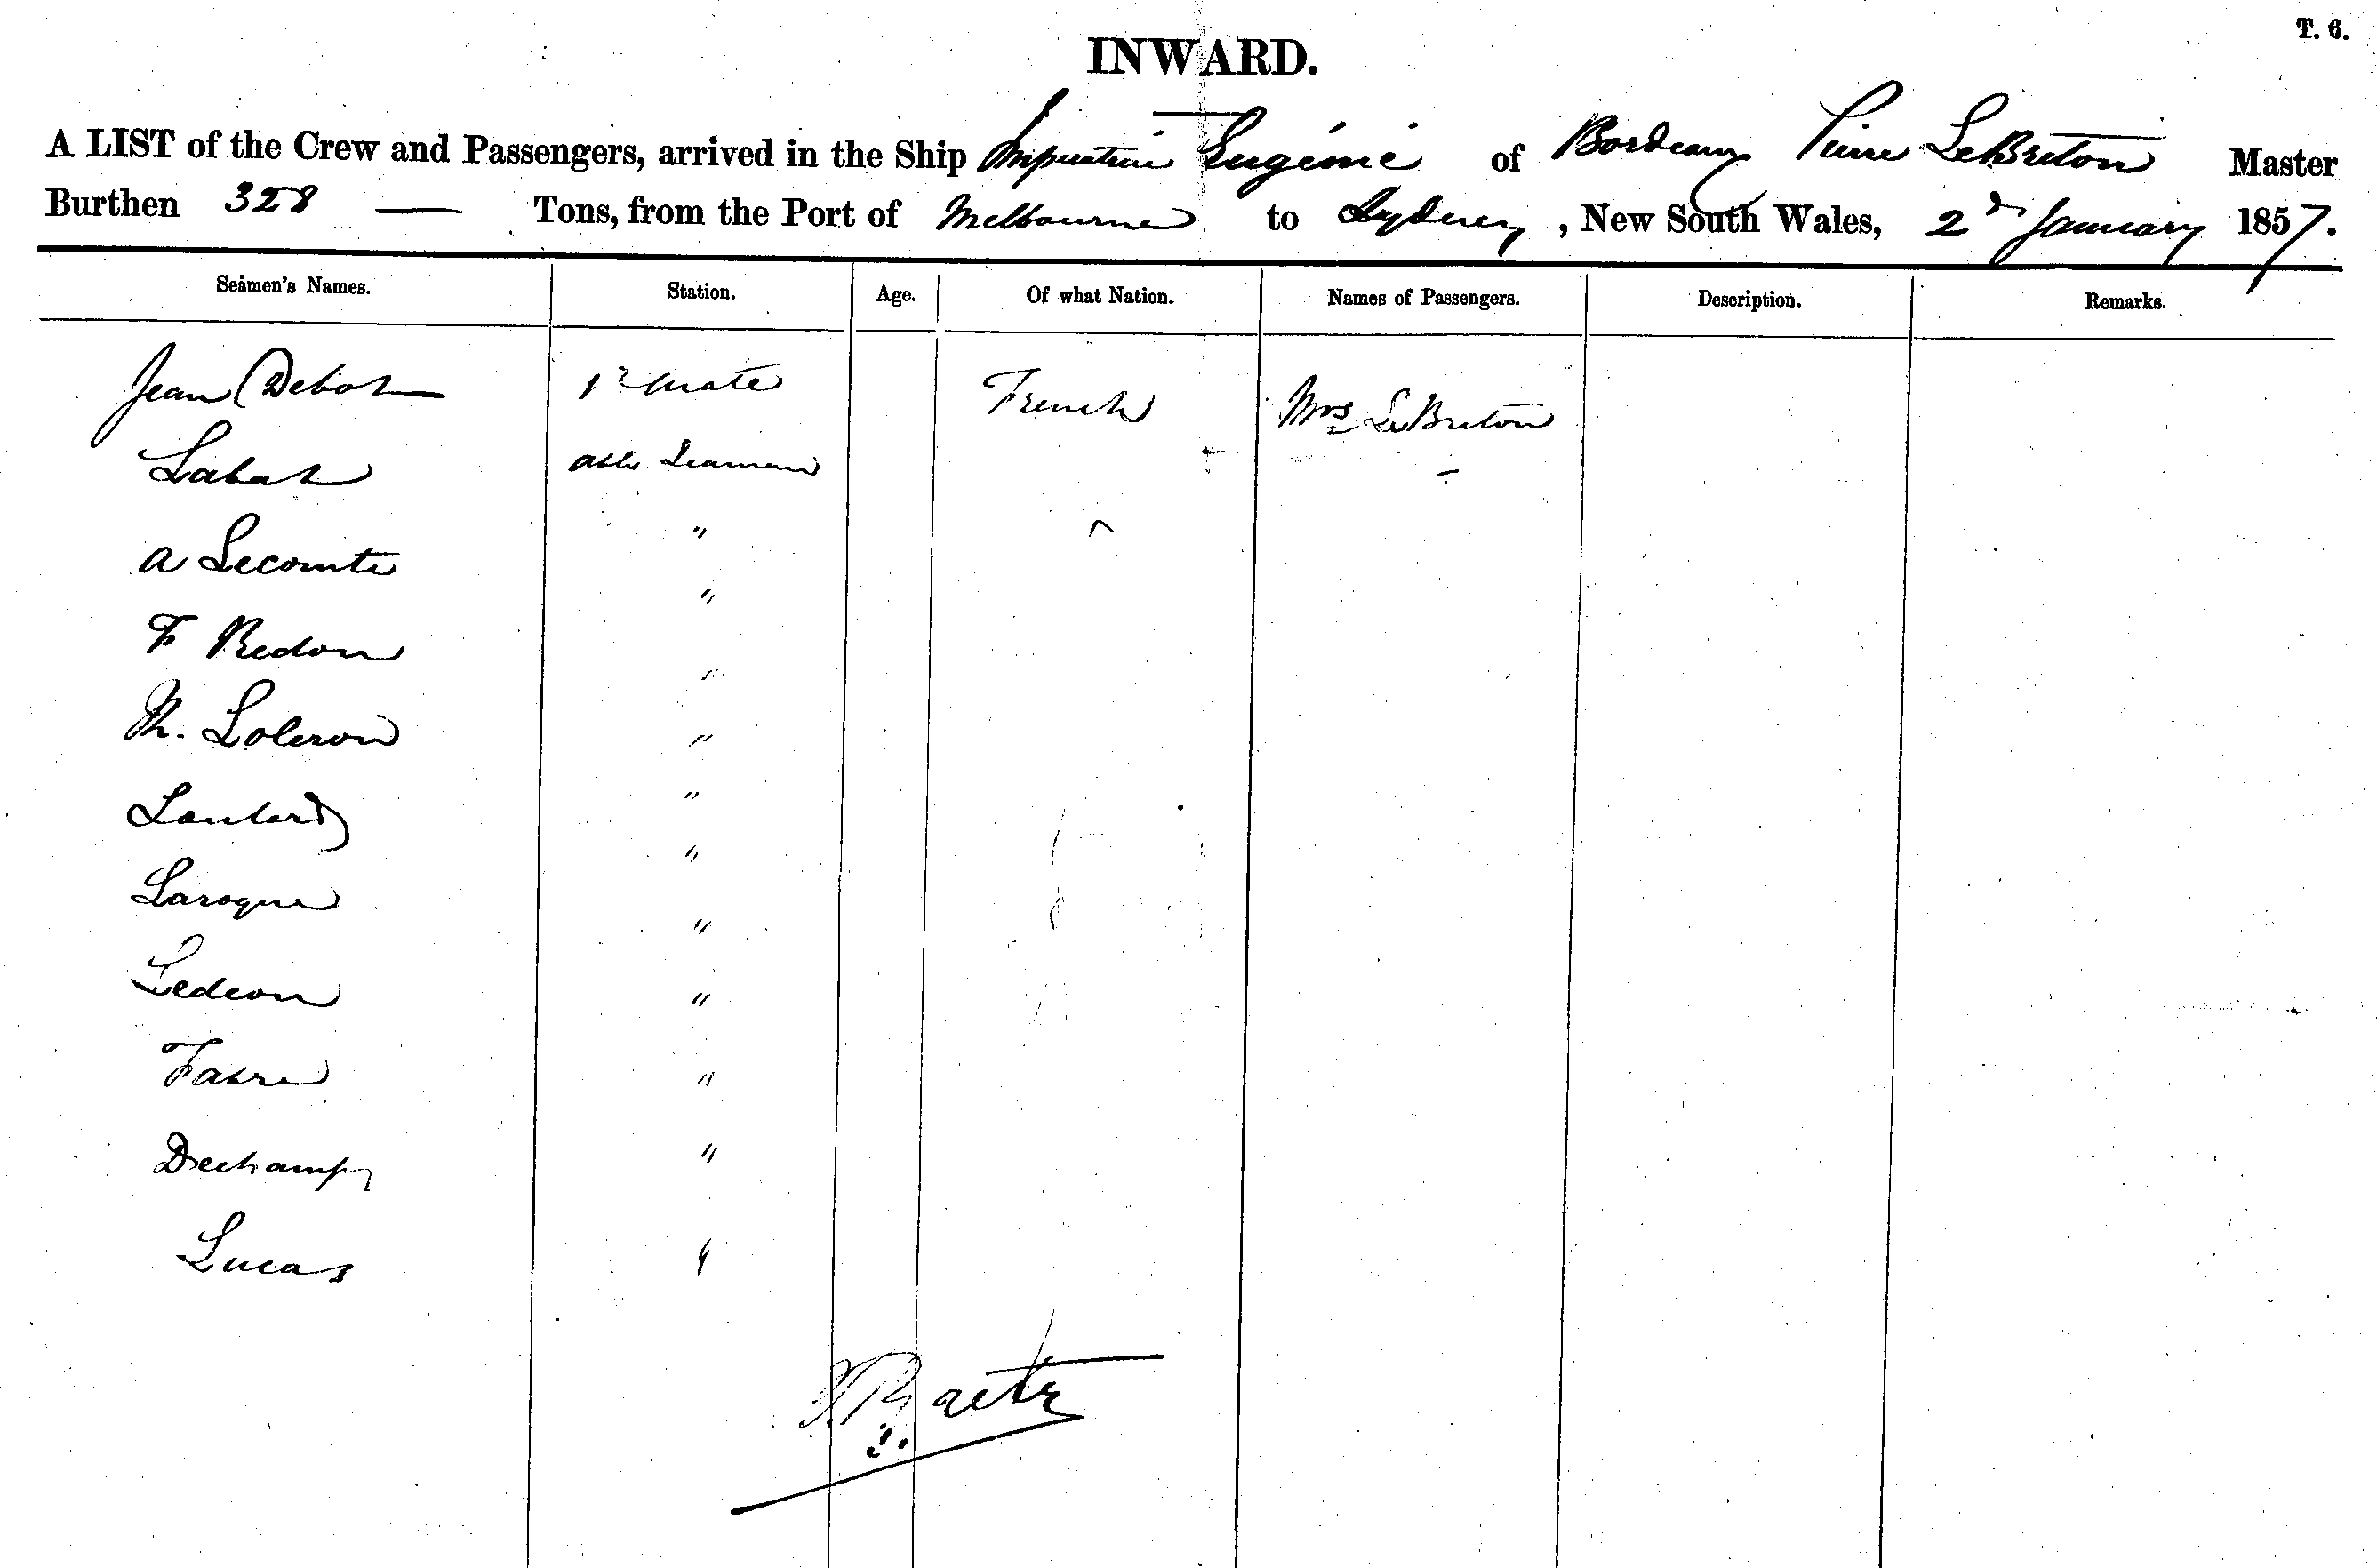 T. 6.
INWARD.
A LIST of the Crew and Passengers, arrived in the Ship Imperatrice Eugénie of Bordeaux Pierre LeBreton Master
Burthen 328 — Tons, from the Port of Melbourne to Sydney, New South Wales, 2d January 1857.
Seamen's Names. Station. Age. Of what Nation. Names of Passengers. Description. Remarks.
Jean Debat 1r Mate French Mrs LeBreton
Labat able Seaman
A Lecomte "
F Redon "
M. Loleron "
"
Laroque "
Ledeon "
Fabre "
Dechamps "
Lucas "